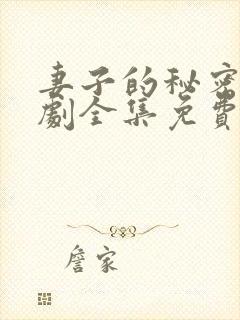 妻子的秘密
劇全集免費
詹家